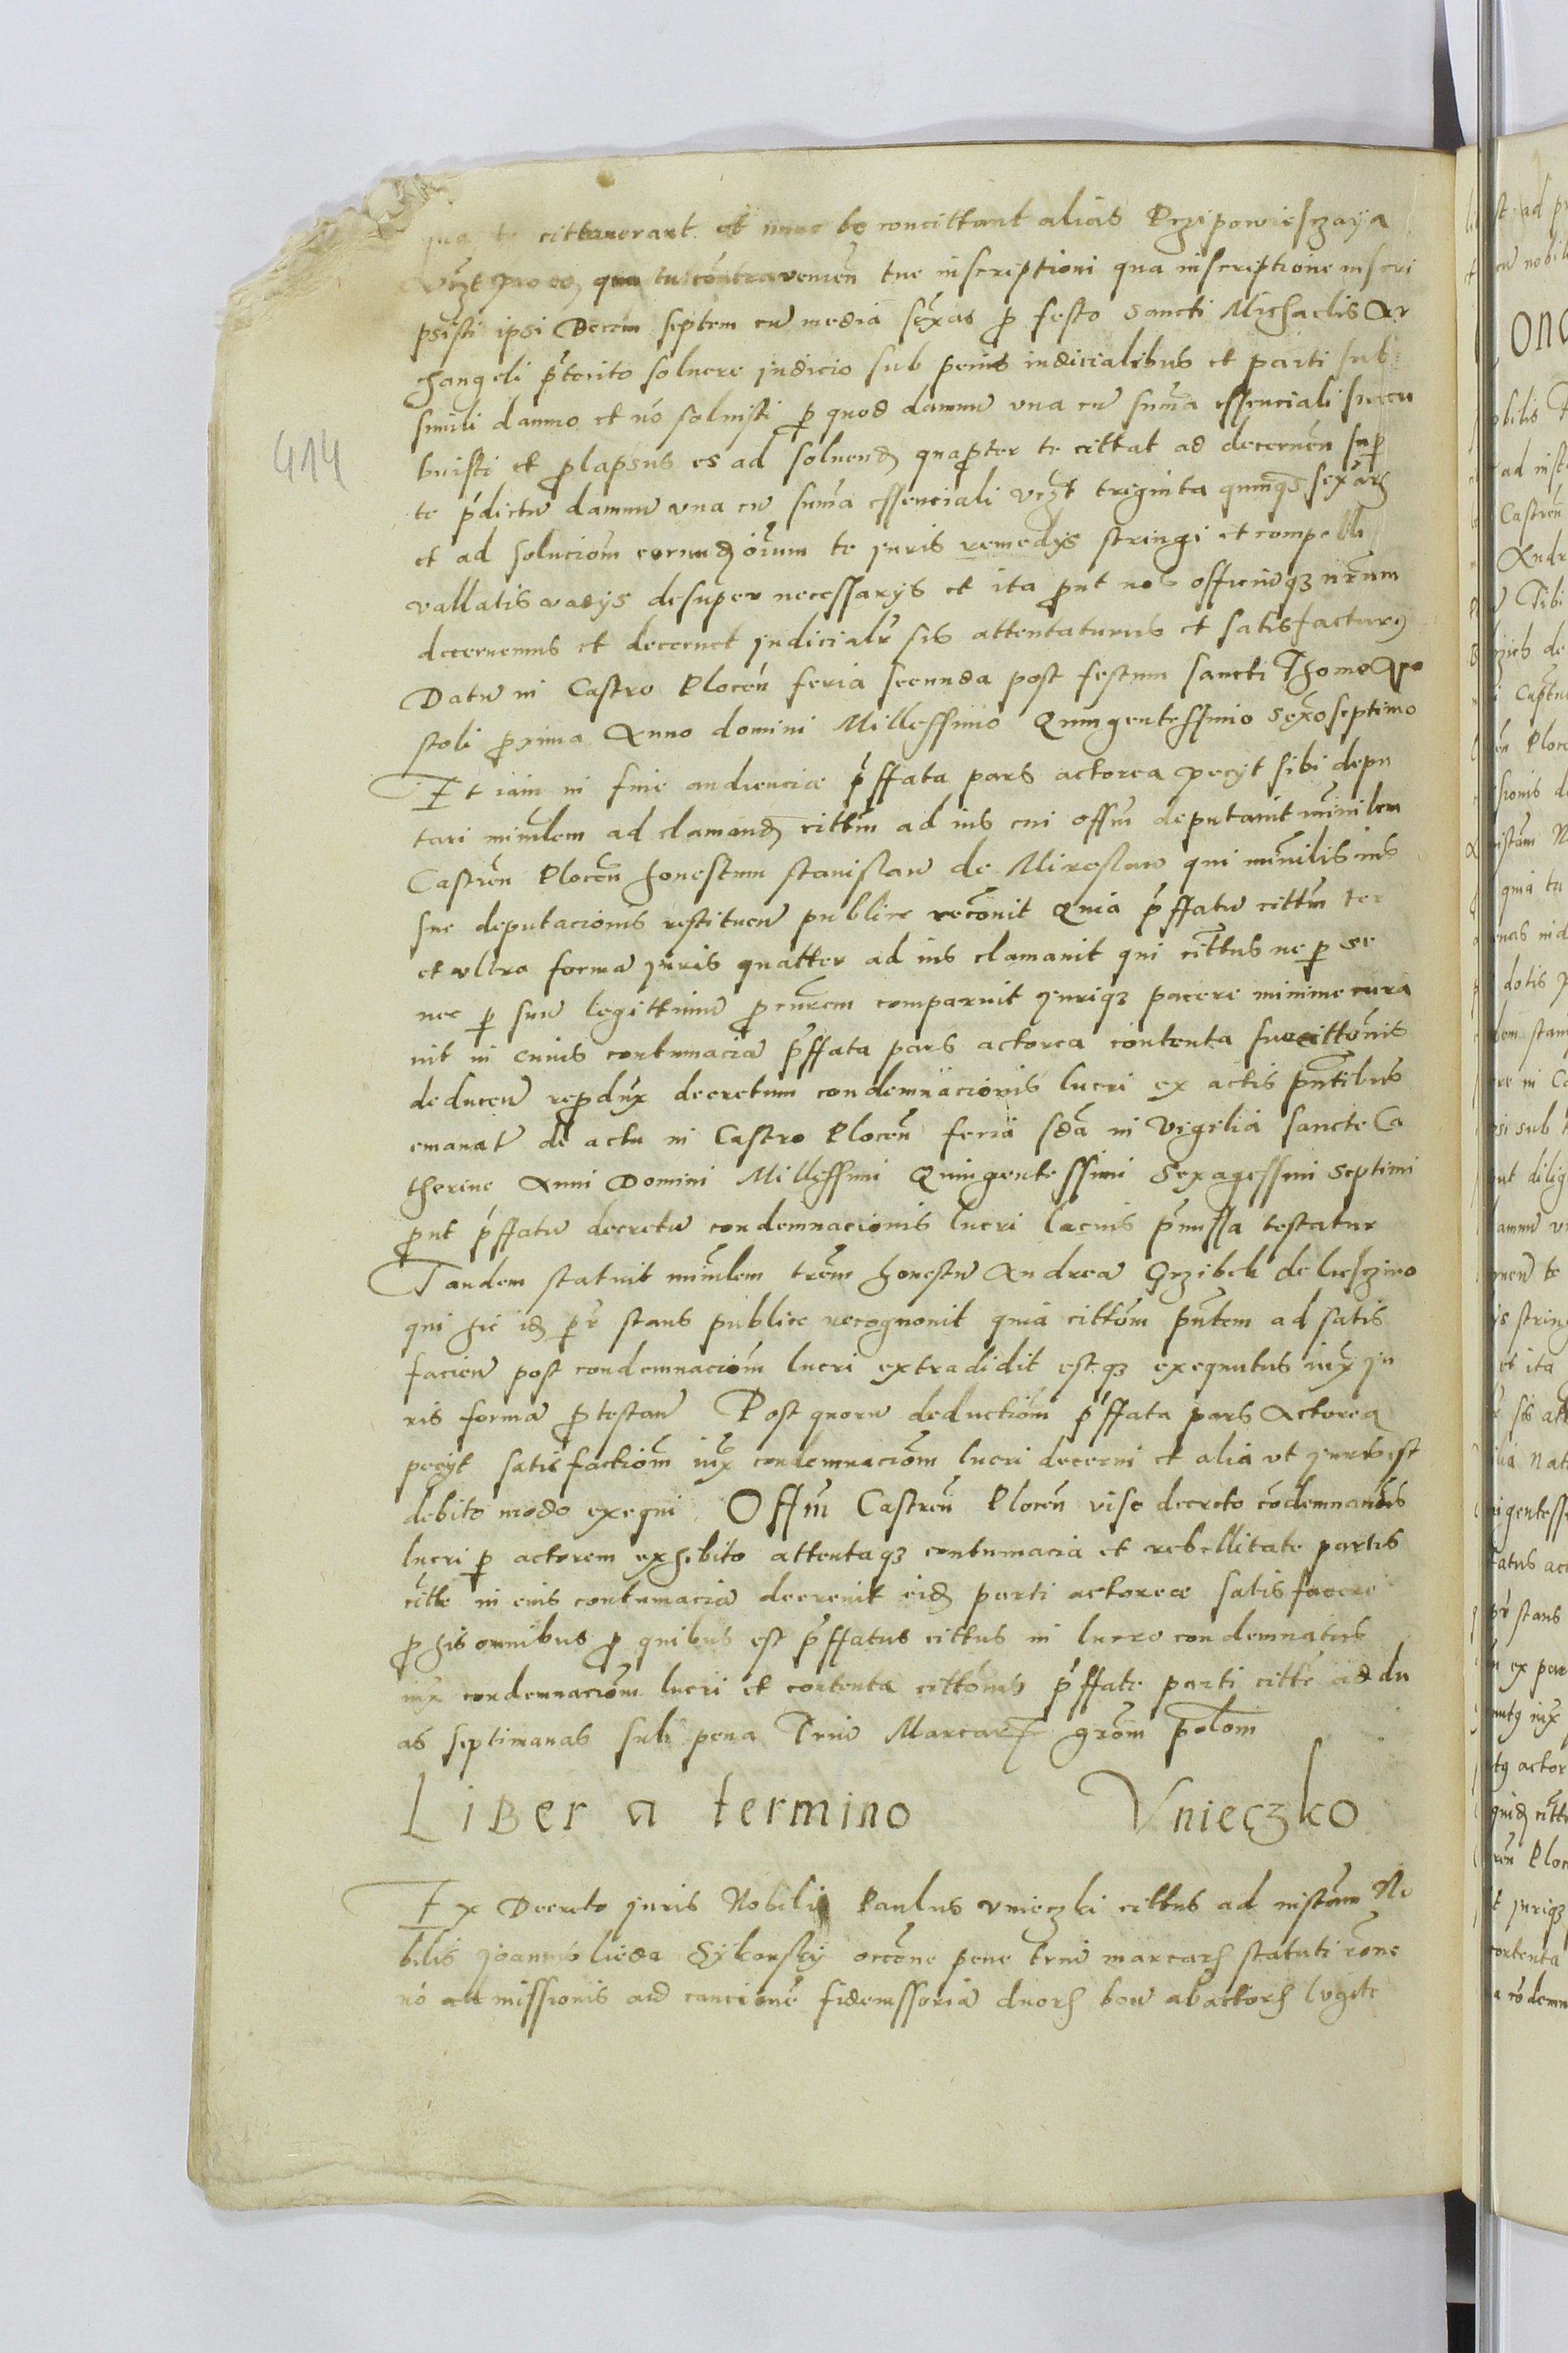 qua te cittaverant et nunc te concittant alias Przipowiesczaya
vczt pro eo qua tu contravenien̄ tue inscriptioni qua inscriptione inscri
psisti ipsi Decem septem cū media sexāς p festo sancti Michaelis Ar
changeli p̄terito solvere judicio sub penis iudicialibus et parti sub
simili damno et nō solvisti p quod damnū una cū suma essenciali succu
buisti et plapsus es ad solvend quapter te cittat ad decernen̄ sup
te p̄dictū damnū una cū suma essenciali vczt triginta quinqꝫ sexarꝝ
et ad solucionē eorund oīum te juris remedys stringi et compelli
vallatis vadys desuper necessarys et ita put nos officiūqꝫ nr̄um
decernemus et decernet judicialr̄ sis attentaturus et satisfacturꝰ
Datū in Castro Plocen̄ feria secunda post festum sancti Thome Apo
stoli pxima Anno domini Millessimo Quingentessimo sexoseptimo
Et iam in fine audiencie p̄ffata pars actorea pecyt sibi depu
tari minr̄lem ad clamand cittm̄ ad ius cui offm̄ deputavit ministrlem
Castren̄ Plocen̄ honestum stanislaū de Miroslaw qui minr̄ilis ius
sue deputacionis restituen̄ publice recōvit Quia p̄ffatū cittm̄ ter
et ultra formā juris quatter ad ius clamavit qui cittus ne p se
nec p suū legittimū pcurem comparuit jurique parere minime cura
vit in cuius contumacia p̄ffata pars actorea contenta sue cittōnis
deducen̄ repdux̄ decretum condemnacionis lucri ex actis pn̄tibus
emanat̄ de actu in Castro Plocen̄ feria sda in Vigilia sancte Ca
therine Anni Domini Millessimi Quingentessimi Sexagessimi septimi
put p̄ffatū decretū condemnacionis lucri lacius p̄missa testatur
Tandem statuit minr̄lem trēm honestū Andreā Grzibek de liesczino
qui hic id pr̄ stans publice recognovit quia cittōm pn̄tem ad satis
facien̄ post condemnaciōm lucri extradidit estqꝫ exequutus iux̄ ju
ris formā ptestan̄ Post quorū deductiōm p̄ffata pars Actorea
pecyt satisfactiōm iux̄ condemnaciōm lucri decerni et alia ut juris est
debito modo exequi Offm̄ Castren̄ Plocen̄ viso decreto cōdemnaciōis
lucri p actorem exhibito attentaqꝫ contumacia et rebellitate partis
citte in eius contumacia decrevit eid parti actoree satisfacere
p his omnibus p quibus est p̄ffatus cittus in lucro condemnatus
iux̄ condemnaciōm lucri et contenta cittōnis p̄ffate parti citte ad du
as septimanas sub pena Triū Marcarꝝ grōm polōm
Liber a termino Unieczko
Ex Decreto juris Nobilis Paulus Unieczki cittus ad instan̄ No
bilis Joannis lieda Sykorsky occone pene triū marcarꝝ statuti rōne
nō admissionis ad caucionē fideiussoriā duorꝝ boū ab actorꝝ legitte